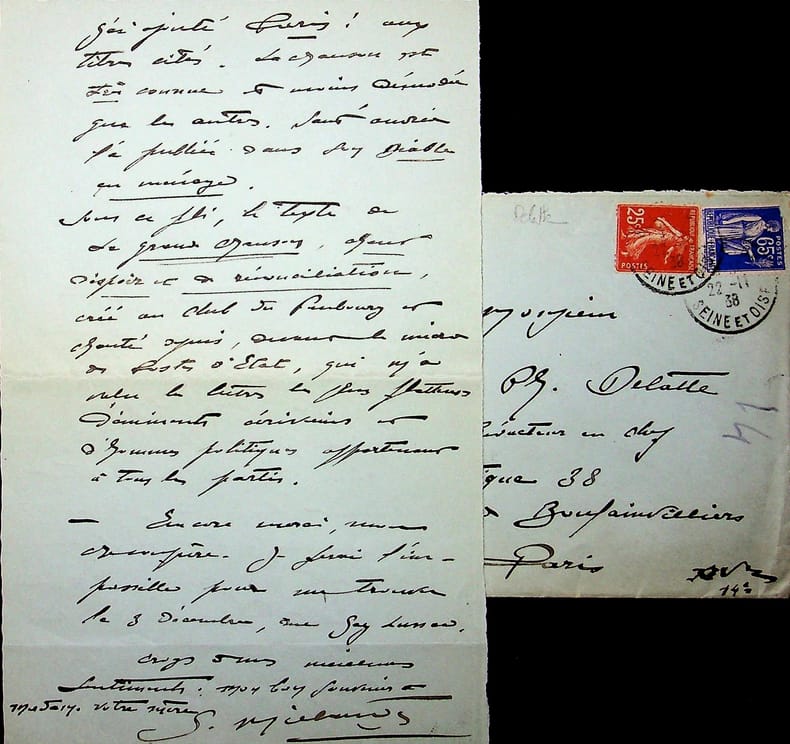 J'ai ajouté Paris ! aux
titres cités. La chanson est
très connue et moins démodée
que les autres.
l'a publiée dans son Diable
en ménage.
Sous ce pli, le texte de
La grande chanson, chant
d'espoir et de réconciliation,
créé au Club du Faubourg et
chanté depuis, devant le micro
des Postes d'Etat, qui m'a
valu les lettres les plus flatteuses
d'éminents écrivains et
d'hommes politiques appartenant
à tous les partis.
— Encore merci, mon
cher confrère. Je ferai l'im-
possible pour me trouver
le 3 Décembre, rue Gay Lussac.
Croyez à mes meilleurs
sentiments. Mon bon souvenir à
votre mère
Delatte
25c
POSTES
REPUBLIQUE FRANÇAISE
65c
POSTES
SEINE ET OISE
22 -11
38
SEINE ET OISE
Monsieur
Ph. Delatte
Rédacteur en chef
38
Boulainvilliers
Paris